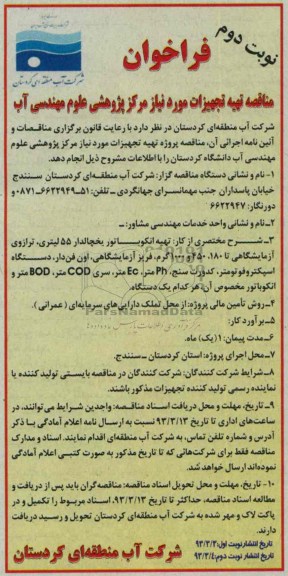 شرکت آب منطقه‌ای کردستان
نوبت دوم
فراخوان
مناقصه تهیه تجهیزات مورد نیاز مرکز پژوهشی علوم مهندسی آب
شرکت آب منطقه‌ای کردستان در نظر دارد با رعایت قانون برگزاری مناقصات و
آئین نامه اجرائی آن، مناقصه پروژه تهیه تجهیزات مورد نیاز مرکز پژوهشی علوم
مهندسی آب دانشگاه کردستان را با اطلاعات مشروح ذیل انجام دهد.
۱- نام و نشانی دستگاه مناقصه گزار: شرکت آب منطقه‌ای کردستان سنندج
خیابان پاسداران جنب مهمانسرای جهانگردی - تلفن: ۵۱-۶۶۲۲۹۴۹-۰۸۷۱ و
دورنگار: ۶۶۲۲۹۴۷
۲- نام و نشانی واحد خدمات مهندسی مشاور: -
۳- شرح مختصری از کار: تهیه انکوباتور یخچالدار ۵۵ لیتری، ترازوی
آزمایشگاهی تا ۱۸۰، ۴۵۰ گرم، فریزر آزمایشگاهی، اون فن‌دار، دستگاه
اسپکتروفوتومتر، کدورت سنج، Ph متر، Ec متر، سری COD متر، BOD متر و
انکوباتور مخصوص آن، هر کدام یک دستگاه
۴- روش تأمین مالی پروژه: از محل تملک دارایی‌های سرمایه‌ای (عمرانی).
۵- برآورد کار:
۶- مدت پیمان: ۱ (یک) ماه.
۷- محل اجرای پروژه: استان کردستان - سنندج.
۸- شرایط شرکت کنندگان: شرکت کنندگان در مناقصه بایستی تولید کننده یا
نماینده رسمی تولید کننده تجهیزات مذکور باشند.
۹- تاریخ، مهلت و محل دریافت اسناد مناقصه: واجدین شرایط می‌توانند، در
ساعت‌های اداری تا تاریخ ۹۳/۳/۱۲ نسبت به ارسال نامه اعلام آمادگی با ذکر
آدرس و شماره تلفن تماس، به شرکت آب منطقه‌ای اقدام نمایند. اسناد و مدارک
مناقصه فقط برای شرکت‌هائی که تا تاریخ مذکور به صورت کتبی اعلام آمادگی
نموده‌اند ارسال خواهد شد.
۱۰- تاریخ، مهلت و محل تحویل اسناد مناقصه: مناقصه گران باید پس از دریافت و
مطالعه اسناد مناقصه، حداکثر تا تاریخ اسناد مربوط را تکمیل و در
پاکت لاک و مهر شده به شرکت آب منطقه‌ای کردستان تحویل و رسید دریافت
دارند.
تاریخ انتشار نوبت اول: ۹۳/۳/۳
تاریخ انتشار نوبت دوم: ۹۳/۳/۴
شرکت آب منطقه‌ای کردستان
ParsNamadData